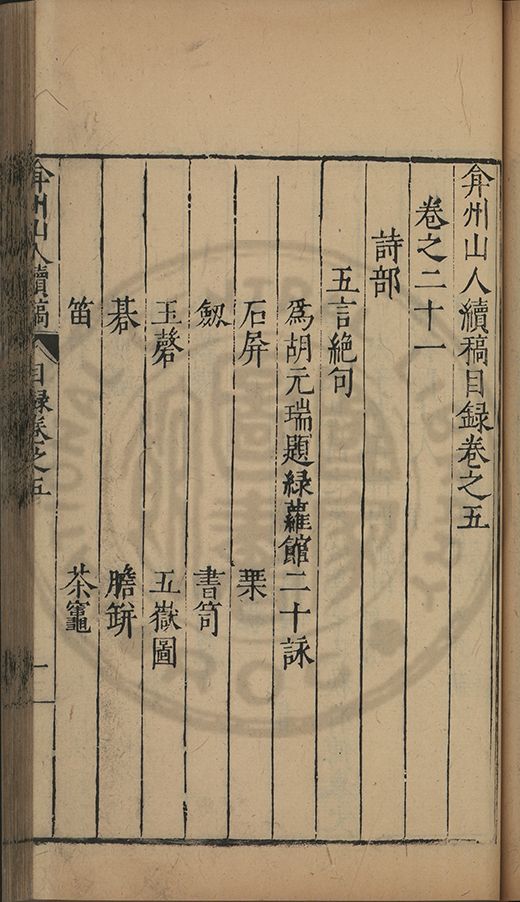 弇州山人續稿目録卷之五
卷之二十一
詩部
五言絶句
爲胡元瑞題綠蘿館二十詠
石屏 琹
劔 書笥
玉磬 五嶽圖
碁 膽缾
笛 茶竈
弇州山人續稿 目録卷之五 一